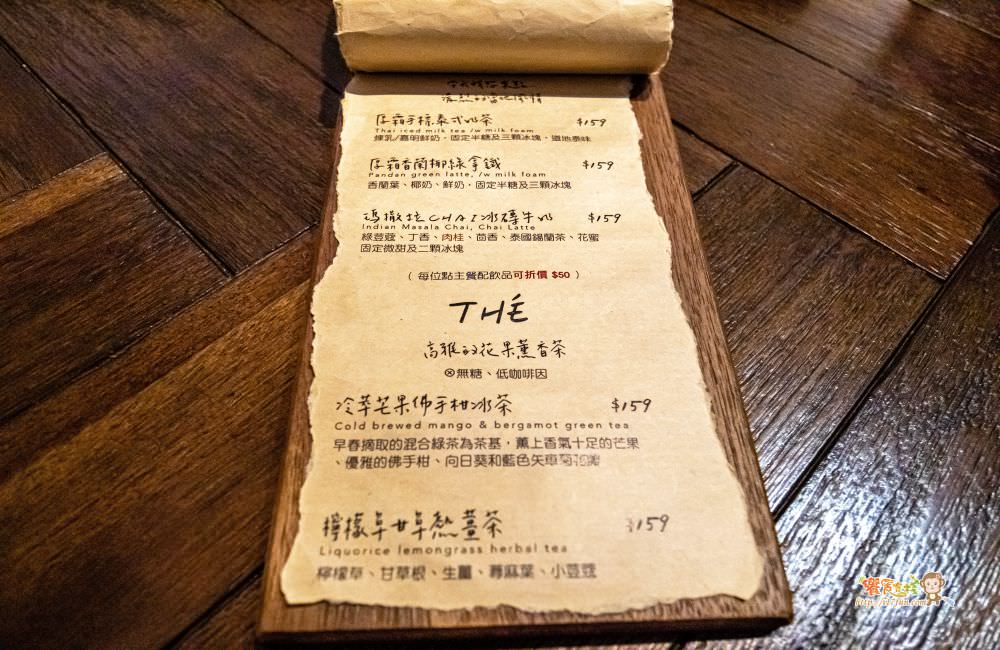 厚霜手標泰式奶茶 $159
Thai iced milk tea /w milk foam
煉乳/嘉明鮮奶，固定半糖及三顆冰塊，道地泰味
厚霜香蘭椰綠拿鐵 $159
Pandan green latte, /w milk foam
香蘭葉、椰奶、鮮奶，固定半糖及三顆冰塊
瑪撒拉CHAI冰磚牛奶 $159
Indian Masala Chai, Chai Latte
綠荳蔻、丁香、肉桂、茴香、泰國錫蘭茶、花蜜
固定微甜及二顆冰塊
（ 每位點主餐配飲品可折價 $50 ）
THÉ
高雅的花果薰香茶
⊗無糖、低咖啡因
冷萃芒果佛手柑冰茶 $159
Cold brewed mango & bergamot green tea
早春摘取的混合綠茶為茶基，薰上香氣十足的芒果
、優雅的佛手柑、向日葵和藍色矢車菊花瓣
檸檬草甘草熬薑茶 $159
Liquorice lemongrass herbal tea
檸檬草、甘草根、生薑、蕁麻葉、小荳蔻